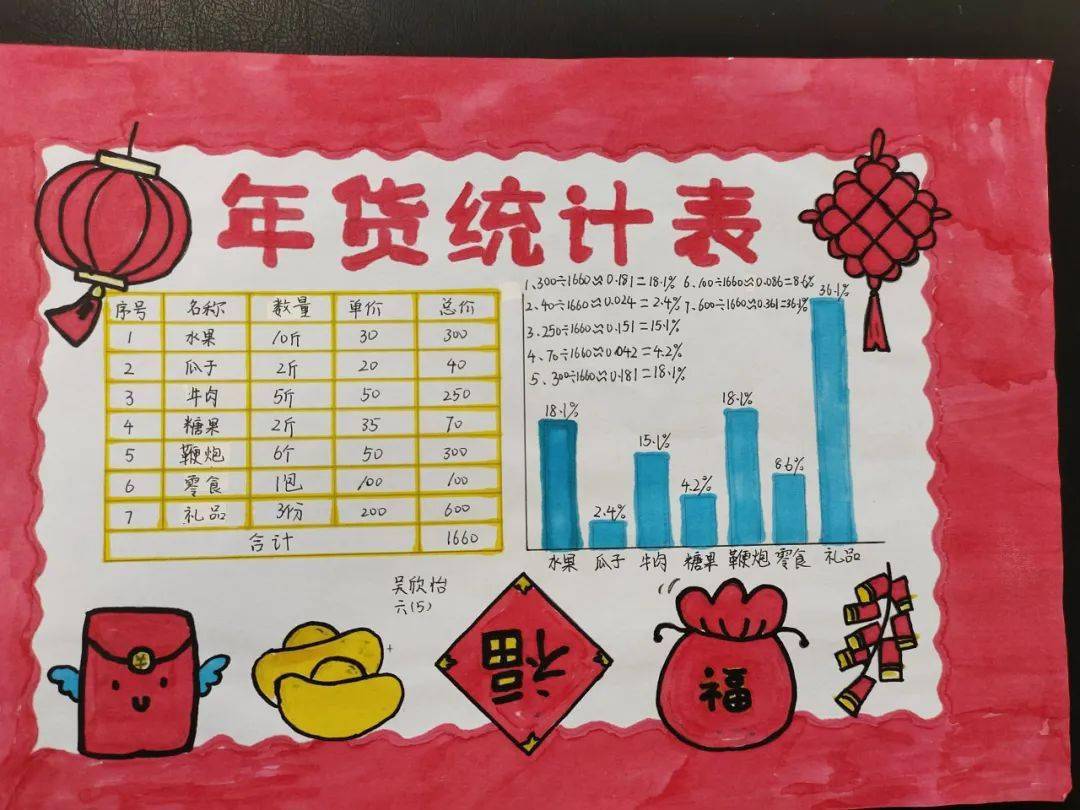 年货统计表
序号 名称 数量 单价 总价
1 水果 10斤 30 300
2 瓜子 2斤 20 40
3 牛肉 5斤 50 250
4 糖果 2斤 35 70
5 鞭炮 6个 50 300
6 零食 1包 100 100
7 礼品 3份 200 600
合计 1660
1、300÷1660≈0.181=18.1% 6、100÷1660≈0.086=8.6%
2、40÷1660≈0.024=2.4% 7、600÷1660≈0.361=36.1%
3、250÷1660≈0.151=15.1%
4、70÷1660≈0.042=4.2%
5、300÷1660≈0.181=18.1%
18.1% 2.4% 15.1% 4.2% 18.1% 8.6% 36.1%
水果 瓜子 牛肉 糖果 鞭炮 零食 礼品
吴欣怡
六(5)
¥
福
福